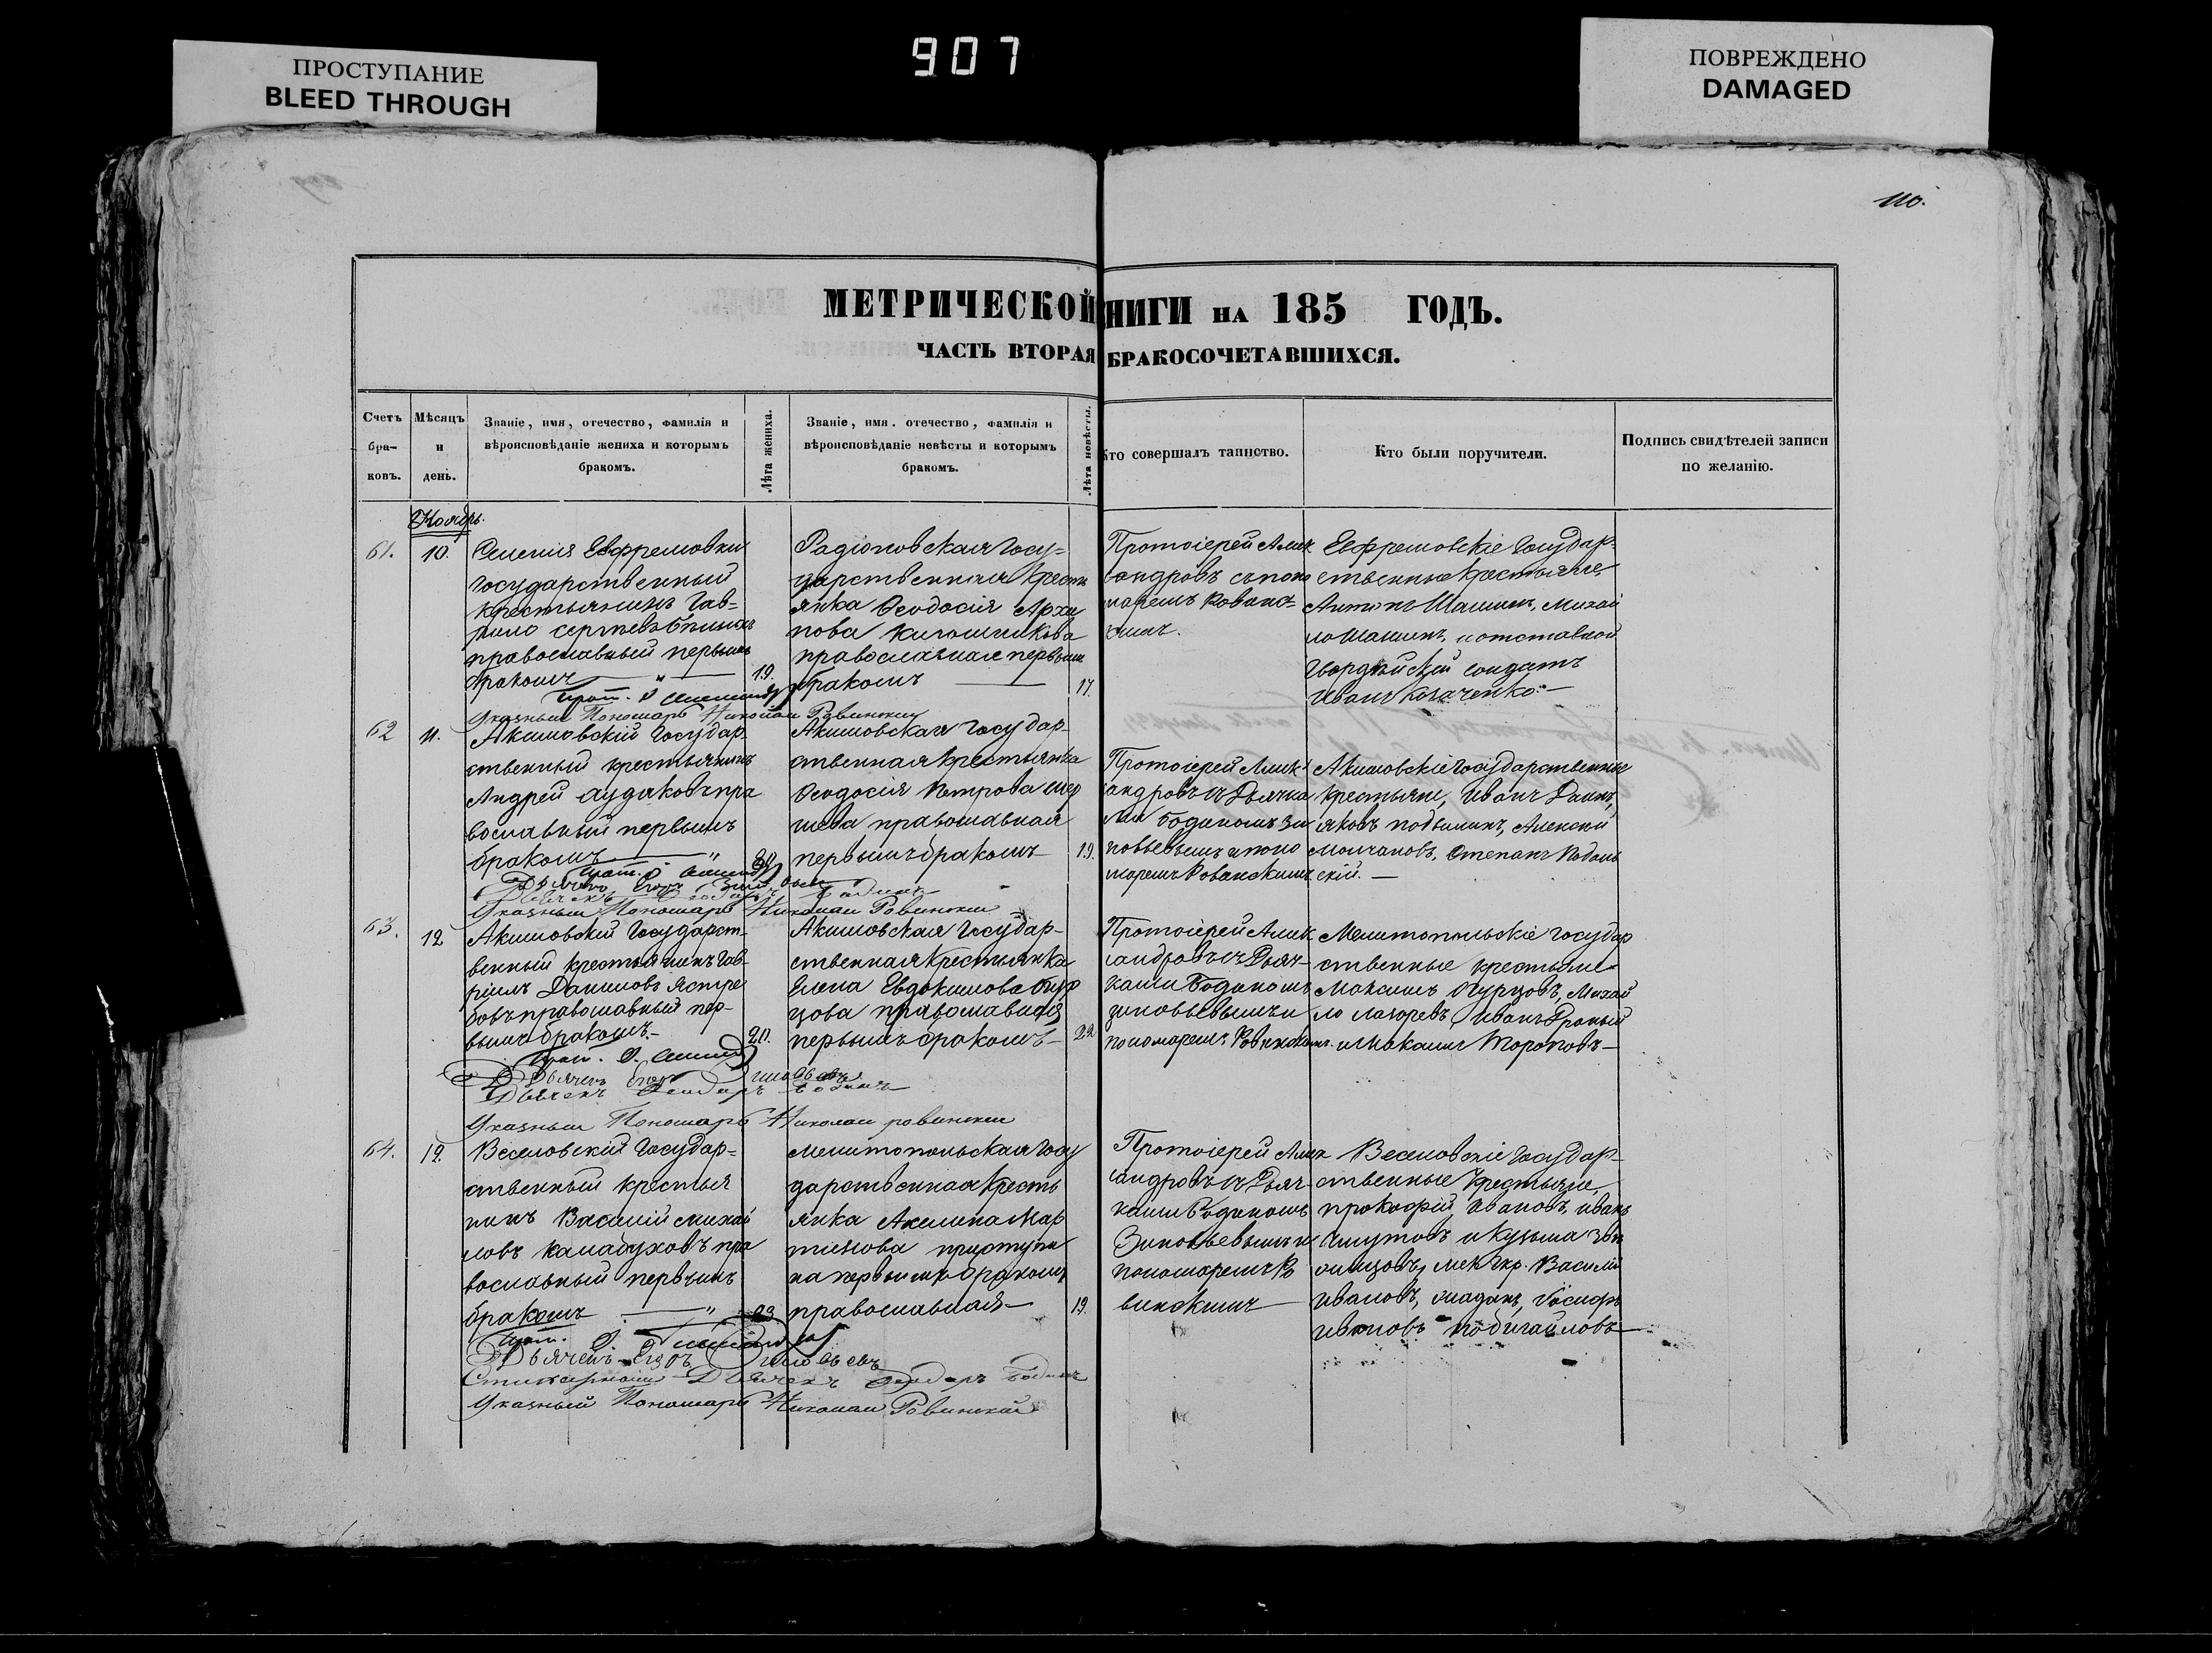 907
ПРОСТУПАНИЕ
BLEED THROUGH
ПОВРЕЖДЕНО
DAMAGED
110.
МЕТРИЧЕСКОЙ НИГИ НА 185 ГОДЪ.
ЧАСТЬ ВТОРАЯ БРАКОСОЧЕТАВШИХСЯ.
Счетъ бра-ковъ.
Мѣсяцъ и день.
Званіе, имя, отечество, фамилія и
вѣроисповѣданіе жениха и которымъ
бракомъ.
Лѣта жениха.
Званіе, имя. отечество, фамилія и
вѣроисповѣданіе невѣсты и которымъ
бракомъ.
Лѣта невѣсты.
Кто совершалъ таинство.
Кто были поручители.
Подпись свидѣтелей записи
по желанію.
Ноябрь.
61.
10.
Селенія Евфремовки
государственный
крестьянинъ Гав-
рило Сергѣевъ
православный первымъ
бракомъ
19.
Радіоновская госу-
дарственная крестья
янка Феодосія Архи
пова
православная первымъ
бракомъ
17.
Протоіерей Алек
сандровъ съ поно
маремъ Ровинс-
кимъ.
Евфремовскіе государ-
ственные крестьяне,
Антонъ Шашинъ, Михай
ло Шашинъ, и отставной
гвардейскій солдатъ
Иванъ Козаченко.
Указный Пономарь Николай Ровинскій
62
11.
Акимовскій государ-
ственный крестьянинъ
Андрей Дудаковъ пра
вославный первымъ
бракомъ
20
Акимовская государ-
ственная крестьянка
Феодосія Петрова
шева православная
первымъ бракомъ
19.
Протоіерей Алек
сандровъ съ Дьячка
ми Бодинымъ Зи
новьевымъ и поно
маремъ Ровинскимъ
Акимовскіе государственные
крестьяне, Иванъ
Яковъ Алексѣй
Молчановъ, Степанъ
скій.
Дьячекъ Егоръ Зиновьевъ
Дьячекъ Бодинъ
Указный Пономарь Николай Ровинскій
63.
12
Акимовскій государст-
венный крестьянинъ Гав-
ріилъ Даниловъ Ястре
бовъ православный пер-
вымъ бракомъ.
20.
Акимовская государ-
ственная крестьянка
Елена Евдокимова
цова православная
первымъ бракомъ
22
Протоіерей Алек
сандровъ съ Дьяч-
ками Бодинымъ
Зиновьевымъ и
пономаремъ Ровинскимъ.
Мелитопольскіе государ
ственные крестьяне
Максимъ Михай
ло Лазаревъ, Иванъ
и Максимъ Тороповъ
Дьячекъ Егоръ Зиновьевъ
Дьячекъ Бодинъ
Указный Пономарь Николай Ровинскій
64.
12.
Веселовскій государ-
ственный крестья
нинъ Василій Михай
ловъ Калабуховъ пра
вославный первымъ
бракомъ
23
Мелитопольская госу
дарственная кресть
янка Акелина Мар
тинова приступи
на первымъ бракомъ
православная
19.
Протоіерей Алек
сандровъ съ Дьяч-
ками Бодинымъ
Зиновьевымъ и
пономаремъ Ро
винскимъ
Веселовскіе государ-
ственные крестьяне,
Прокофій Ивановъ, Иванъ
и Кузьма
Василій
Ивановъ, Іосифъ
Ивановъ
Дьячекъ Егоръ Зиновьевъ
Дьячекъ Бодинъ
Указный Пономарь Николай Ровинскій